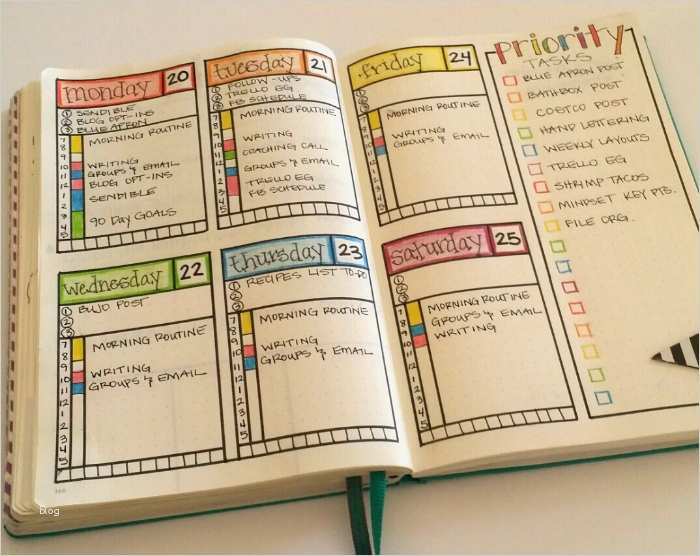 monday 20
1 SENDIBLE
2 BLOG OPT-INS
3 BLUE APRON
7
8
9
10
11
12
1
2
3
4
5
MORNING ROUTINE
WRITING
GROUPS & EMAIL
BLOG OPT-INS
SENDIBLE
90 DAY GOALS
tuesday 21
1 FOLLOW-UPS
2 TRELLO EG
3 FB SCHEDULE
7
8
9
10
11
12
1
2
3
4
5
MORNING ROUTINE
WRITING
COACHING CALL
GROUPS & EMAIL
TRELLO EG
FB SCHEDULE
friday 24
1
2
3
7
8
9
10
11
12
1
2
3
4
5
MORNING ROUTINE
WRITING
GROUPS & EMAIL
priority
TASKS
BLUE APRON POST
BATHBOX POST
COSTCO POST
HAND LETTERING
WEEKLY LAYOUTS
TRELLO EG
SHRIMP TACOS
MINDSET KEY PTS.
FILE ORG.
wednesday 22
1 BUJO POST
2
3
7
8
9
10
11
12
1
2
3
4
5
MORNING ROUTINE
WRITING
GROUPS & EMAIL
thursday 23
1 RECIPES LIST TO-DO
2
3
7
8
9
10
11
12
1
2
3
4
5
MORNING ROUTINE
WRITING
GROUPS & EMAIL
saturday 25
1
2
3
7
8
9
10
11
12
1
2
3
4
5
MORNING ROUTINE
GROUPS & EMAIL
WRITING
blog